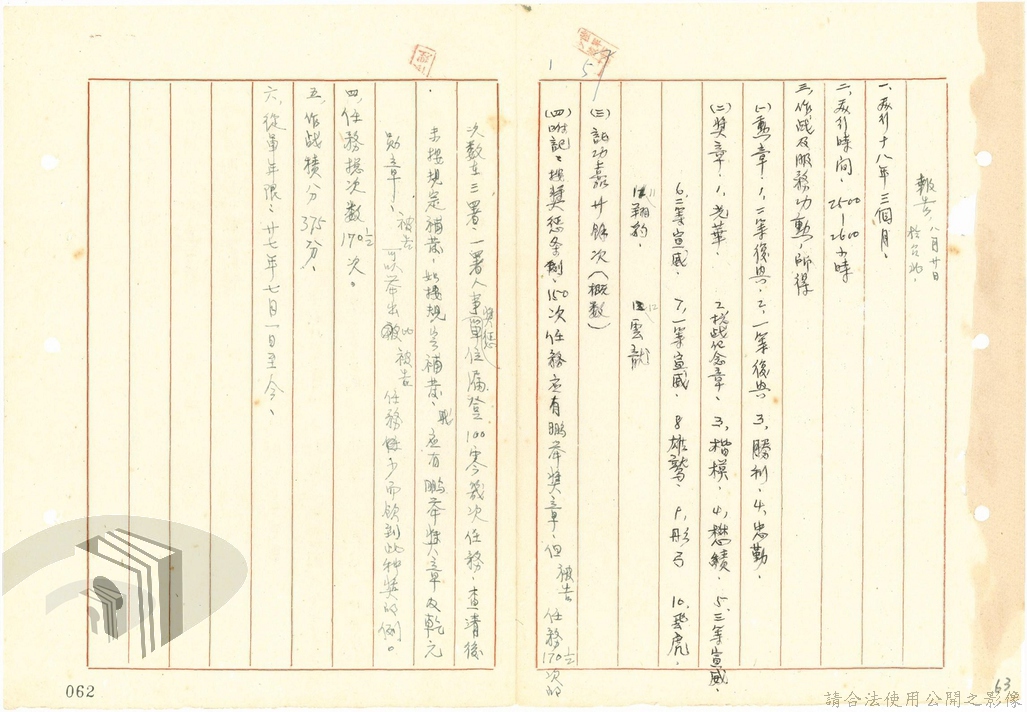 報告 八月廿日
於台北
一、飛行十八年三個月。
二、飛行時間、2500－2600小時
三、作战及服務功勳，所得
(一)勳章：1、二等復興 2、一等復興 3、勝利、4、忠勤、
(二)獎章：1、光華 2、抗战纪念章、3、楷模、4、懋績、5、三等宣威、
6、二等宣威、 7、一等宣威、 8 雄鷲、 9、彤弓 10、飛虎、
11 翔豹、 12 雲龍
(三)記功嘉廿餘次(概数)
(四)附記：按獎懲条例、150次任務应有鵬举獎章、但被告任務170½次的
次数在三署、一署人事單位獎懲漏登100零幾次任務、查清後
未按規定補發、如按規定補發、則应有鵬举獎章及乾元
勛章！被告可以举出比被告任務少而領到此种獎的例。
四、任務総次数170½次。
五、作战積分375分、
六、從軍年限：廿七年七月一日至今、
062
63
請合法使用公開之影像